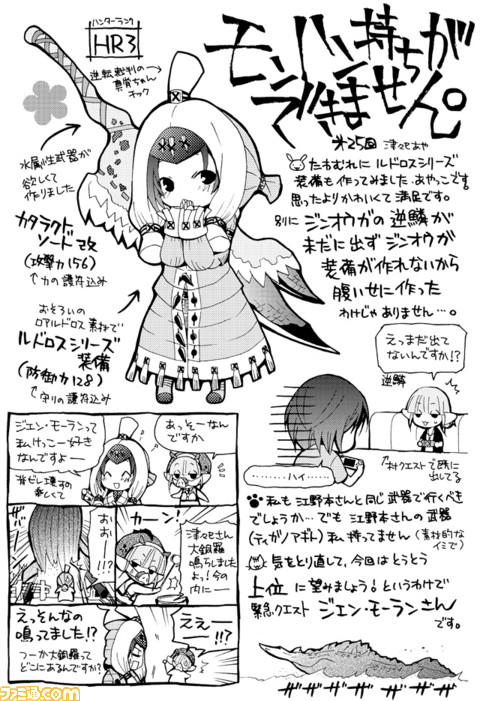 モンハン持ちが
できません。
第25回 津々巳あや
ハンターランク
HR3
逆転裁判の
真宵ちゃん
チック
水属性武器が
欲しくて
作りました
カタラクト
ソード改
(攻撃力156)
力の護符込み
おそろいの
ロアルドロス素材で
ルドロスシリーズ
装備
(防御力128)
守りの護符込み
たわむれに ルドロスシリーズ
装備も作ってみました、あやっこです。
思ったよりかわいくて満足です。
別に ジンオウガの逆鱗が
未だに出ず ジンオウガ
装備が作れないから
腹いせに作った
わけじゃ ありません…。
えっまだ出て
ないんですか!?
逆鱗
村クエストで既に出
てる
………ハイ…
私も 江野本さんと同じ武器で行くべき
でしょうか…でも 江野本さんの武器
(ティガノアギト)私 持ってません(素材的な
イミで)
気をとり直して、今回はとうとう
上位 に望みましょう!というわけで
緊急クエスト ジエン・モーランさん
です。
ザザザザザ
ジエン・モーランって
私けっこー好き
なんですよー
あっそーなん
ですか
カーン!
津々巳さん
大銅羅
鳴らしました
よっ!今の
内に――
おお
――!!
えっそんなの
鳴ってました!?
つーか大銅羅って
どこにあるんですか?
ええー
――!!?
ファミ通.com